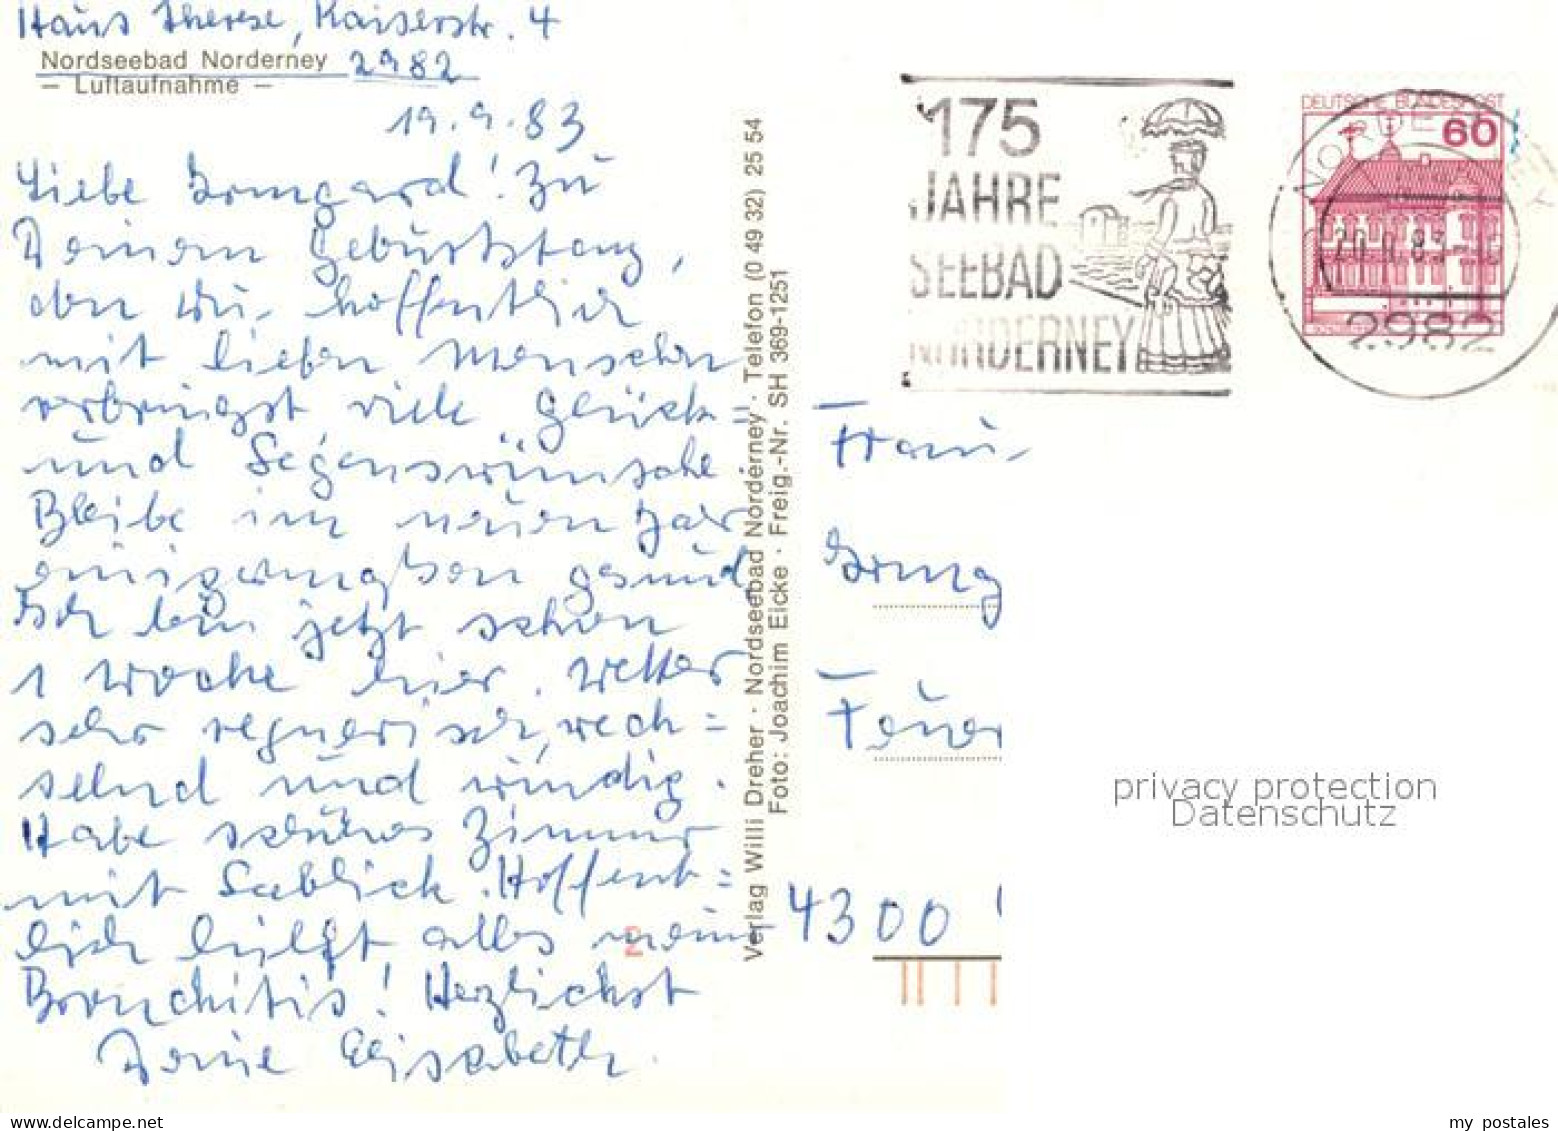 Haus Therese, Kaiserstr. 4
Nordseebad Norderney 2982
— Luftaufnahme —
19.9.83
Liebe Irmgard! Zu
Deinem Geburtstag,
den Du hoffentlich
mit lieben Menschen
verbringst viele Glück=
und Segenswünsche
Bleibe im neuen Jahr
einigermaßen gesund
Ich bin jetzt schon
1 Woche hier. Wetter
sehr regnerisch, wech=
selnd und windig.
Habe schönes Zimmer
mit Seeblick. Hoffent=
lich hilft alles meiner
Bronchitis! Herzlichst
Deine Elisabeth
Verlag Willi Dreher · Nordseebad Norderney · Telefon (0 49 32) 25 54
Foto: Joachim Eicke · Freig.-Nr. SH 369-1251
2
175
JAHRE
SEEBAD
NORDERNEY
DEUTSCHE BUNDESPOST
60
2982
Frau
Irmg
Feuer
4300
privacy protection
Datenschutz
my postales